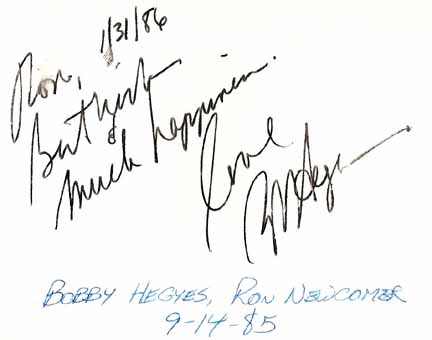 1/31/86
Ron,
Best Wishes
&
Much happiness.
Love
BOBBY HEGYES, RON NEWCOMER
9-14-85